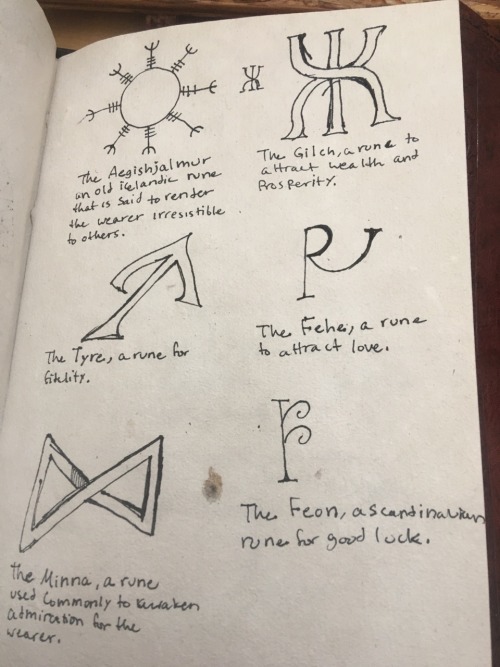 The Aegishjalmur
an old icelandic rune
that is said to render
the wearer irresistible
to others.
The Gilch, a rune to
attract wealth and
Prosperity.
The Tyre, a rune for
fidelity.
The Fehe, a rune
to attract love.
The Minna, a rune
used commonly to awaken
admiration for the
wearer.
The Feon, a scandinavian
rune for good luck.